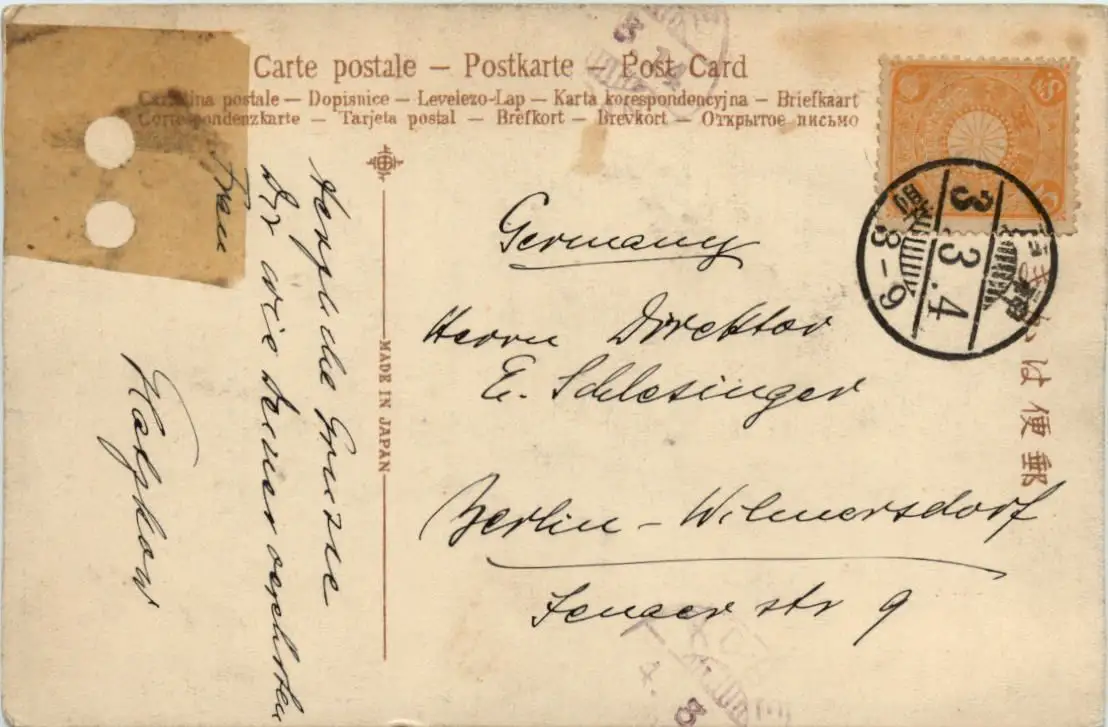 Carte postale — Postkarte — Post Card
Cartolina postale — Dopisnice — Levelezo-Lap — Karta korespondencyjna — Briefkaart
Correspondenzkarte — Tarjeta postal — Brefkort — Brevkort — Открытое письмо
Herzliche Grüsse
Dir wie Deiner verehrten
Frau
MADE IN JAPAN
Germany
Herrn Direktor
E. Schlesinger
Berlin - Wilmersdorf
Jenaer str 9
3.3.4
3-9
郵便は